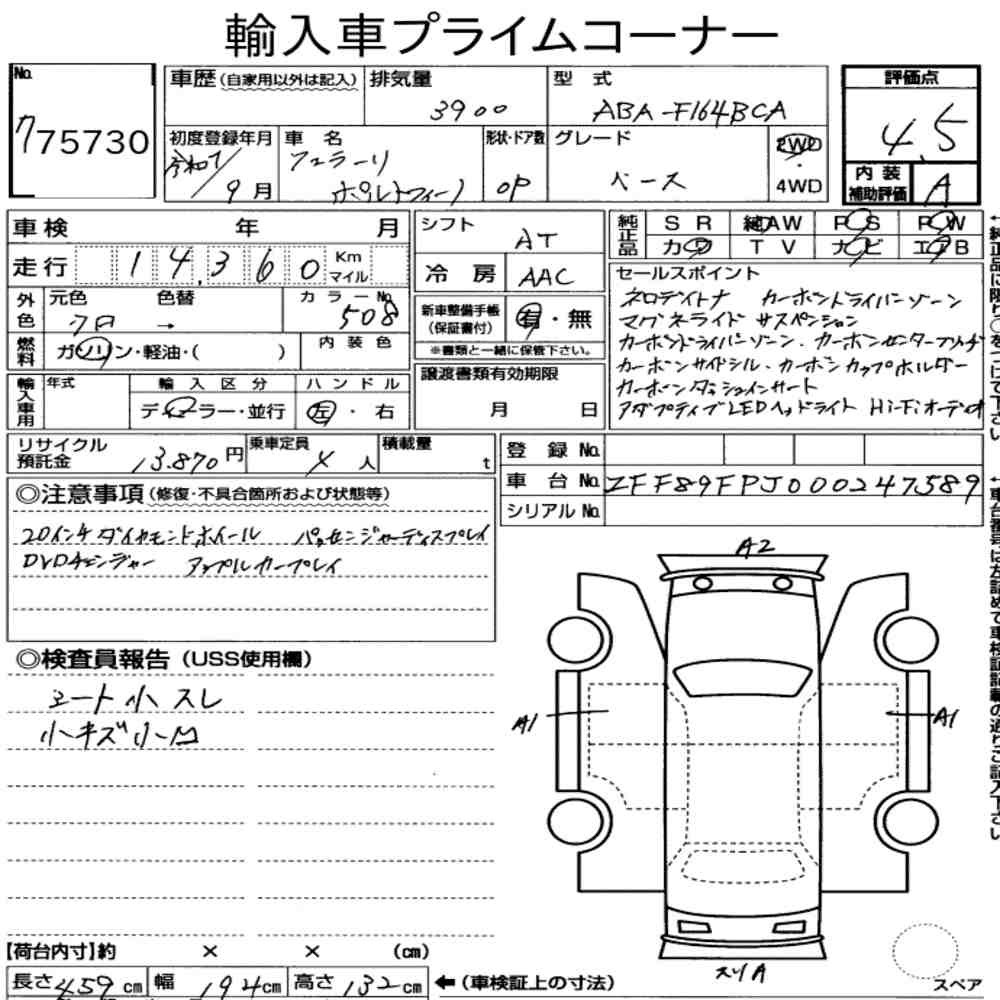 輸入車プライムコーナー
No.
775730
車歴(自家用以外は記入)
排気量
3900
型 式
ABA-F164BCA
評価点
4.5
初度登録年月
令和1/9月
車 名
フェラーリ
ポルトフィーノ
形状・ドア数
OP
グレード
ベース
2WD
・
4WD
内装
補助評価
A
車検 年 月
走行 14,360 Km マイル
シフト
AT
冷 房
AAC
純正品
S R 純AW P S P W
カワ T V ナビ エアB
外色
元色 色替
クロ →
カラーNo.
508
新車整備手帳
(保証書付)
有・無
※書類と一緒に保管下さい。
燃料
ガソリン・軽油・( )
内装色
輸入車用
年式
輸入区分
ディーラー・並行
ハンドル
左・右
譲渡書類有効期限
月 日
セールスポイント
ネロデイトナ カーボンドライバーゾーン
マグネライド サスペンション
カーボンドライバーゾーン. カーボンセンターブリッヂ
カーボンサイドシル. カーボンカップホルダー
カーボンダッシュインサート
アダプティブLEDヘッドライト Hi-Fiオーディオ
リサイクル
預託金
13.870円
乗車定員
4人
積載量
t
登 録 No.
車 台 No. ZFF89FPJ000247589
シリアル No.
◎注意事項(修復・不具合箇所および状態等)
20インチダイヤモンドホイール パッセンジャーディスプレイ
DVDチェンジャー アップルカープレイ
◎検査員報告(USS使用欄)
シート小スレ
小キズ小凹
A2
A1
A1
スリA
スペア
【荷台内寸】約 × × (cm)
長さ459cm 幅194cm 高さ132cm
←(車検証上の寸法)
←純正品に限り○をつけて下さい
←車台番号は左詰めで車検証記載の通りご記入下さい